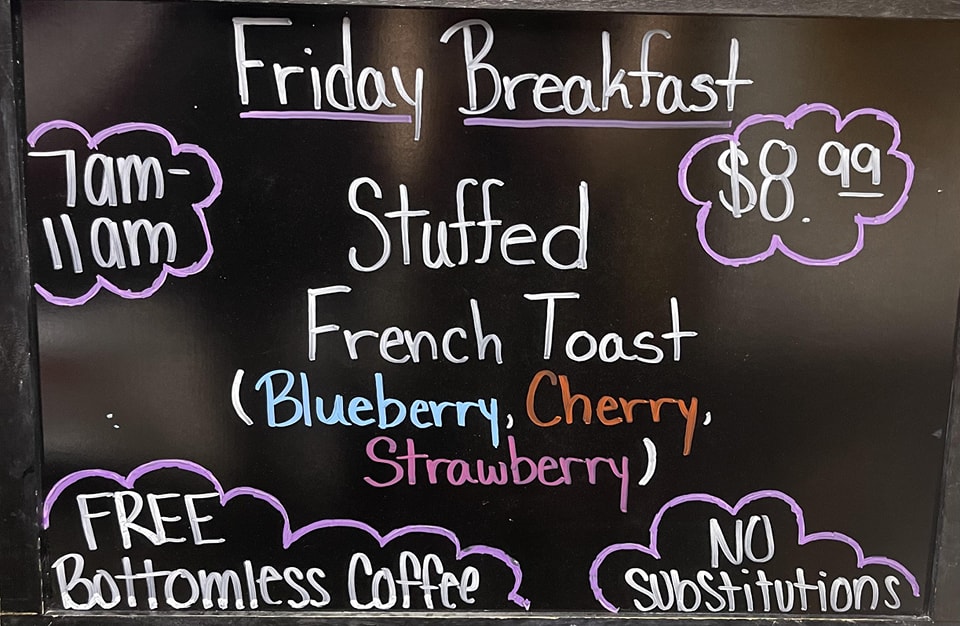 Friday Breakfast
7am-
11am
$8.99
Stuffed
French Toast
(Blueberry, Cherry,
Strawberry)
FREE
Bottomless Coffee
NO
Substitutions